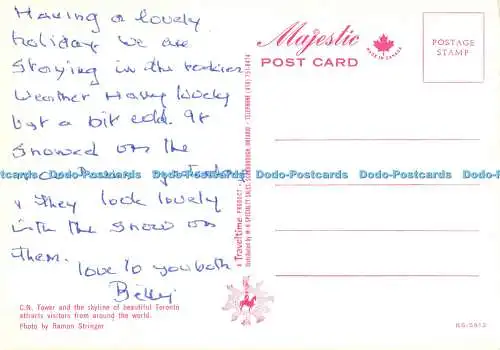 Having a lovely
holiday we are
staying in the rockies
Weather Having lovely
but a bit cold. It
snowed on the
yesterday
& they look lovely
with the snow on
them.
love to you both
Dodo-Postcards Dodo-Postcards Dodo-Postcards Dodo-Postcards
C.N. Tower and the skyline of beautiful Toronto
attracts visitors from around the world.
Photo by Ramon Stringer
A Traveltime PRODUCT
Distributed by W-R SPECIALTY SALES, SCARBOROUGH, ONTARIO - TELEPHONE (416) 751-8474
Majestic
POST CARD
MADE IN CANADA
POSTAGE
STAMP
KG:5912